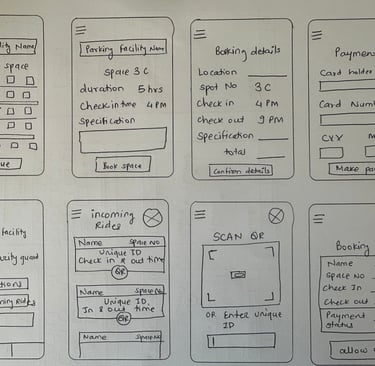 ility Name
space
ue
Parking Facility Name
Space 3 C
duration 5 hrs
Check in time 4 PM
Specification
Book space
Booking details
Location
Spot No 3 C
Check in 4 PM
Check out 9 PM
Specification
total
Confirm details
Paymen
Card holder
Card Numb
CVV M
Make pa
facility
urity guard
tions
ming Rides
incoming
Rides
Name Space No
Unique ID
Check in & out time
QR
Name Space No
Unique ID,
In & out time
QR
Name Space No
SCAN QR
OR Enter Unique
ID
Booking
Name
Space No
Check In
Check out
Payment
status
allow